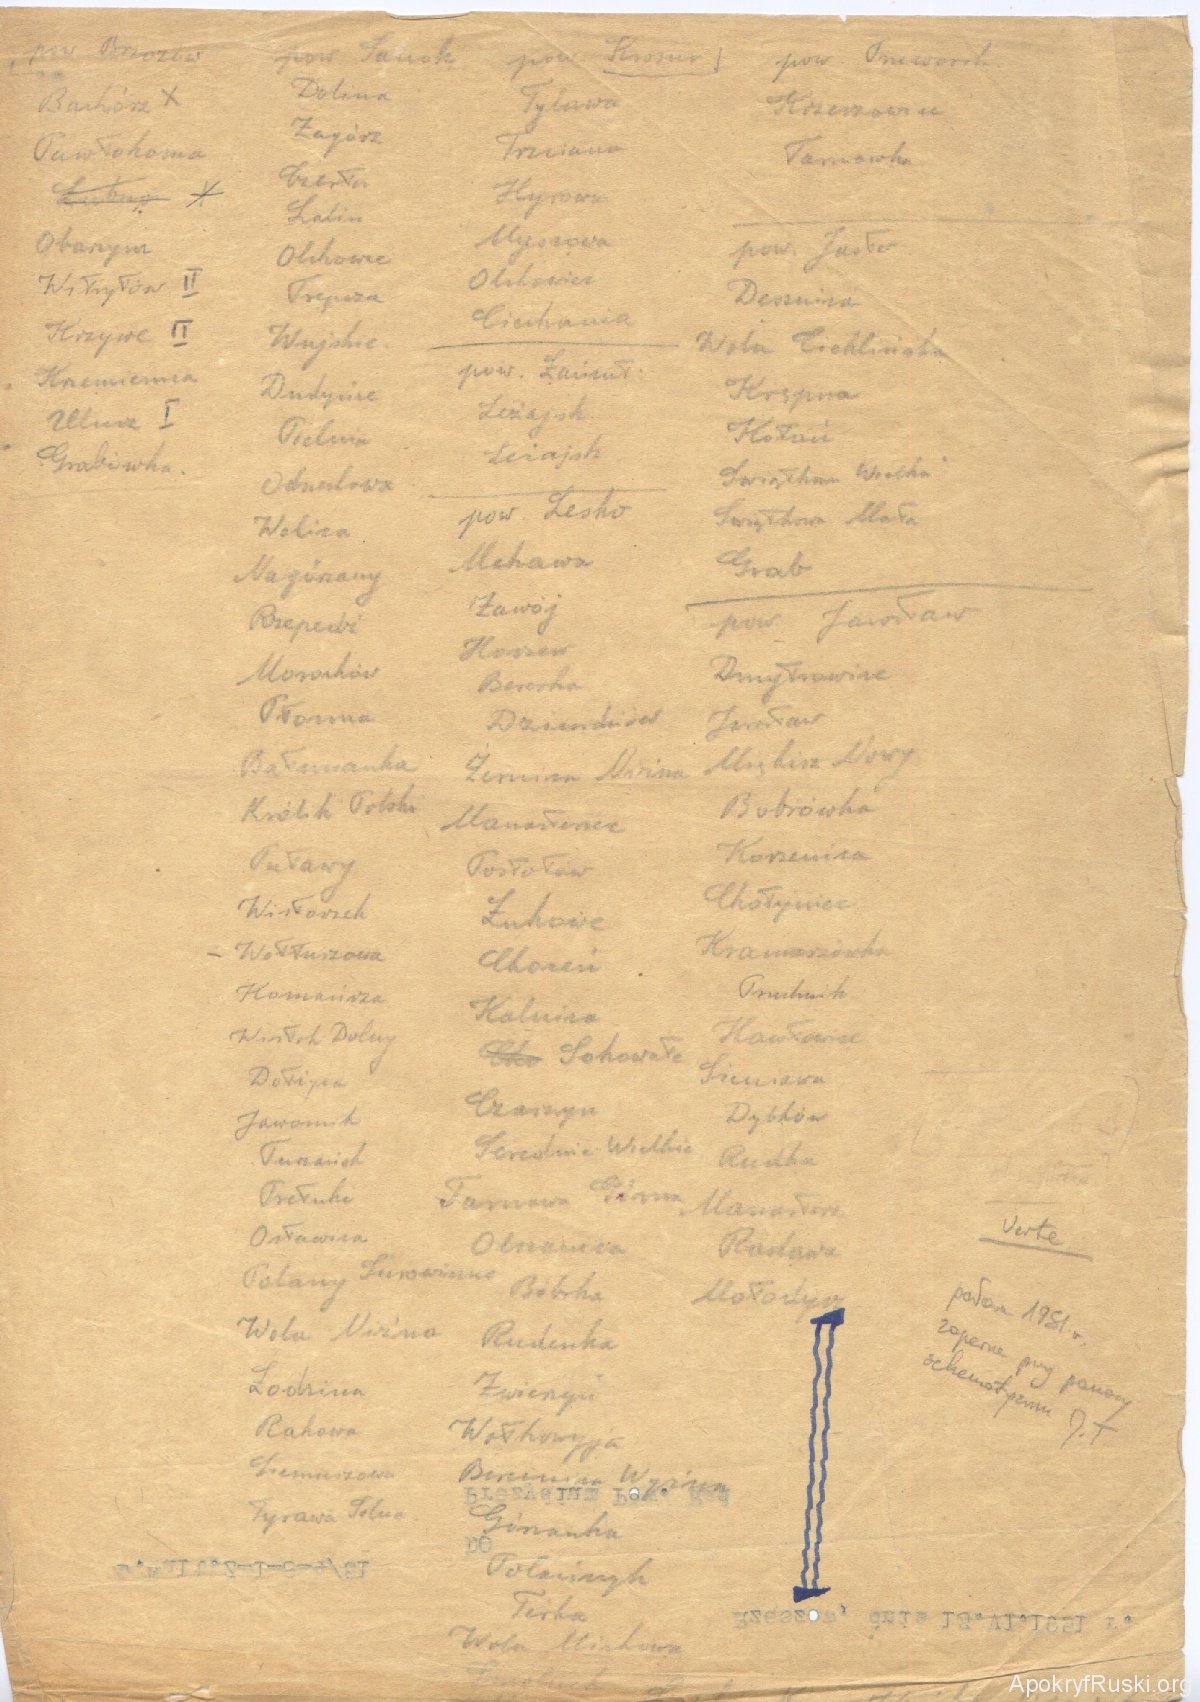 pow Brzozów
Bachórz X
Pawłokoma
X
Obarzym
Witryłów II
Krzywe II
Krzemienna
Ulucz I
Grabówka.
pow Sanok
Dolina
Zagórz
Czerteż
Zalin
Olchowce
Trepcza
Wujskie.
Dudyńce
Pielnia
Odrzechowa
Wolica
Nagórzany
Rzepedź
Morochów
Płonna
Bałucianka
Królik Polski
Puławy
Wisłoczek
- Wołtuszowa
Komańcza
Wisłok Dolny
Dołżyca
Jawornik
Turzańsk
Prełuki
Osławica
Polany Surowiczne
Wola Niżna
Łodzina
Rakowa
Siemuszowa
Tyrawa Solna
pow. Krosno
Tylawa
Trzciana
Hyrowa
Myscowa
Olchowiec
Ciechania
pow. Łańcut:
Leżajsk
Leżajsk
pow. Lesko
Mchawa
Zawój
Horzew
Bereska
Dziurdziów
Żernica Niżna
Manasterzec
Postołów
Łukowe
Choceń
Kalnica
Cho Sokowałe
Czaszyn
Serednie Wielkie
Tarnawa Górna
Olszanica
Bóbrka
Rudenka
Zwierzyń
Wołkowyja
Bereźnica Wyżna
Górzanka
Polańczyk
Terka
Wola Michowa
pow. Przeworsk.
Krzeczowice
Tarnawka
pow. Jasło
Desznica
Wola Cieklińska
Krępna
Kotań
Świątkowa Wielka
Świątkowa Mała
Grab
pow Jarosław
Dmytrowice
Jarosław
Miękisz Nowy
Bobrówka
Korzenica
Chotyniec
Kramarzówka
Pruchnik
Hawłowice
Sieniawa
Dybków
Rudka
Manasterz
Radawa
Mołodycz
Verte
podan 1951 r.
zapewne przy pomocy
schematyzmu D.T
Prezydium Pow. Rad
DO
Rzeszów, dnia 12.VI.1951 r.